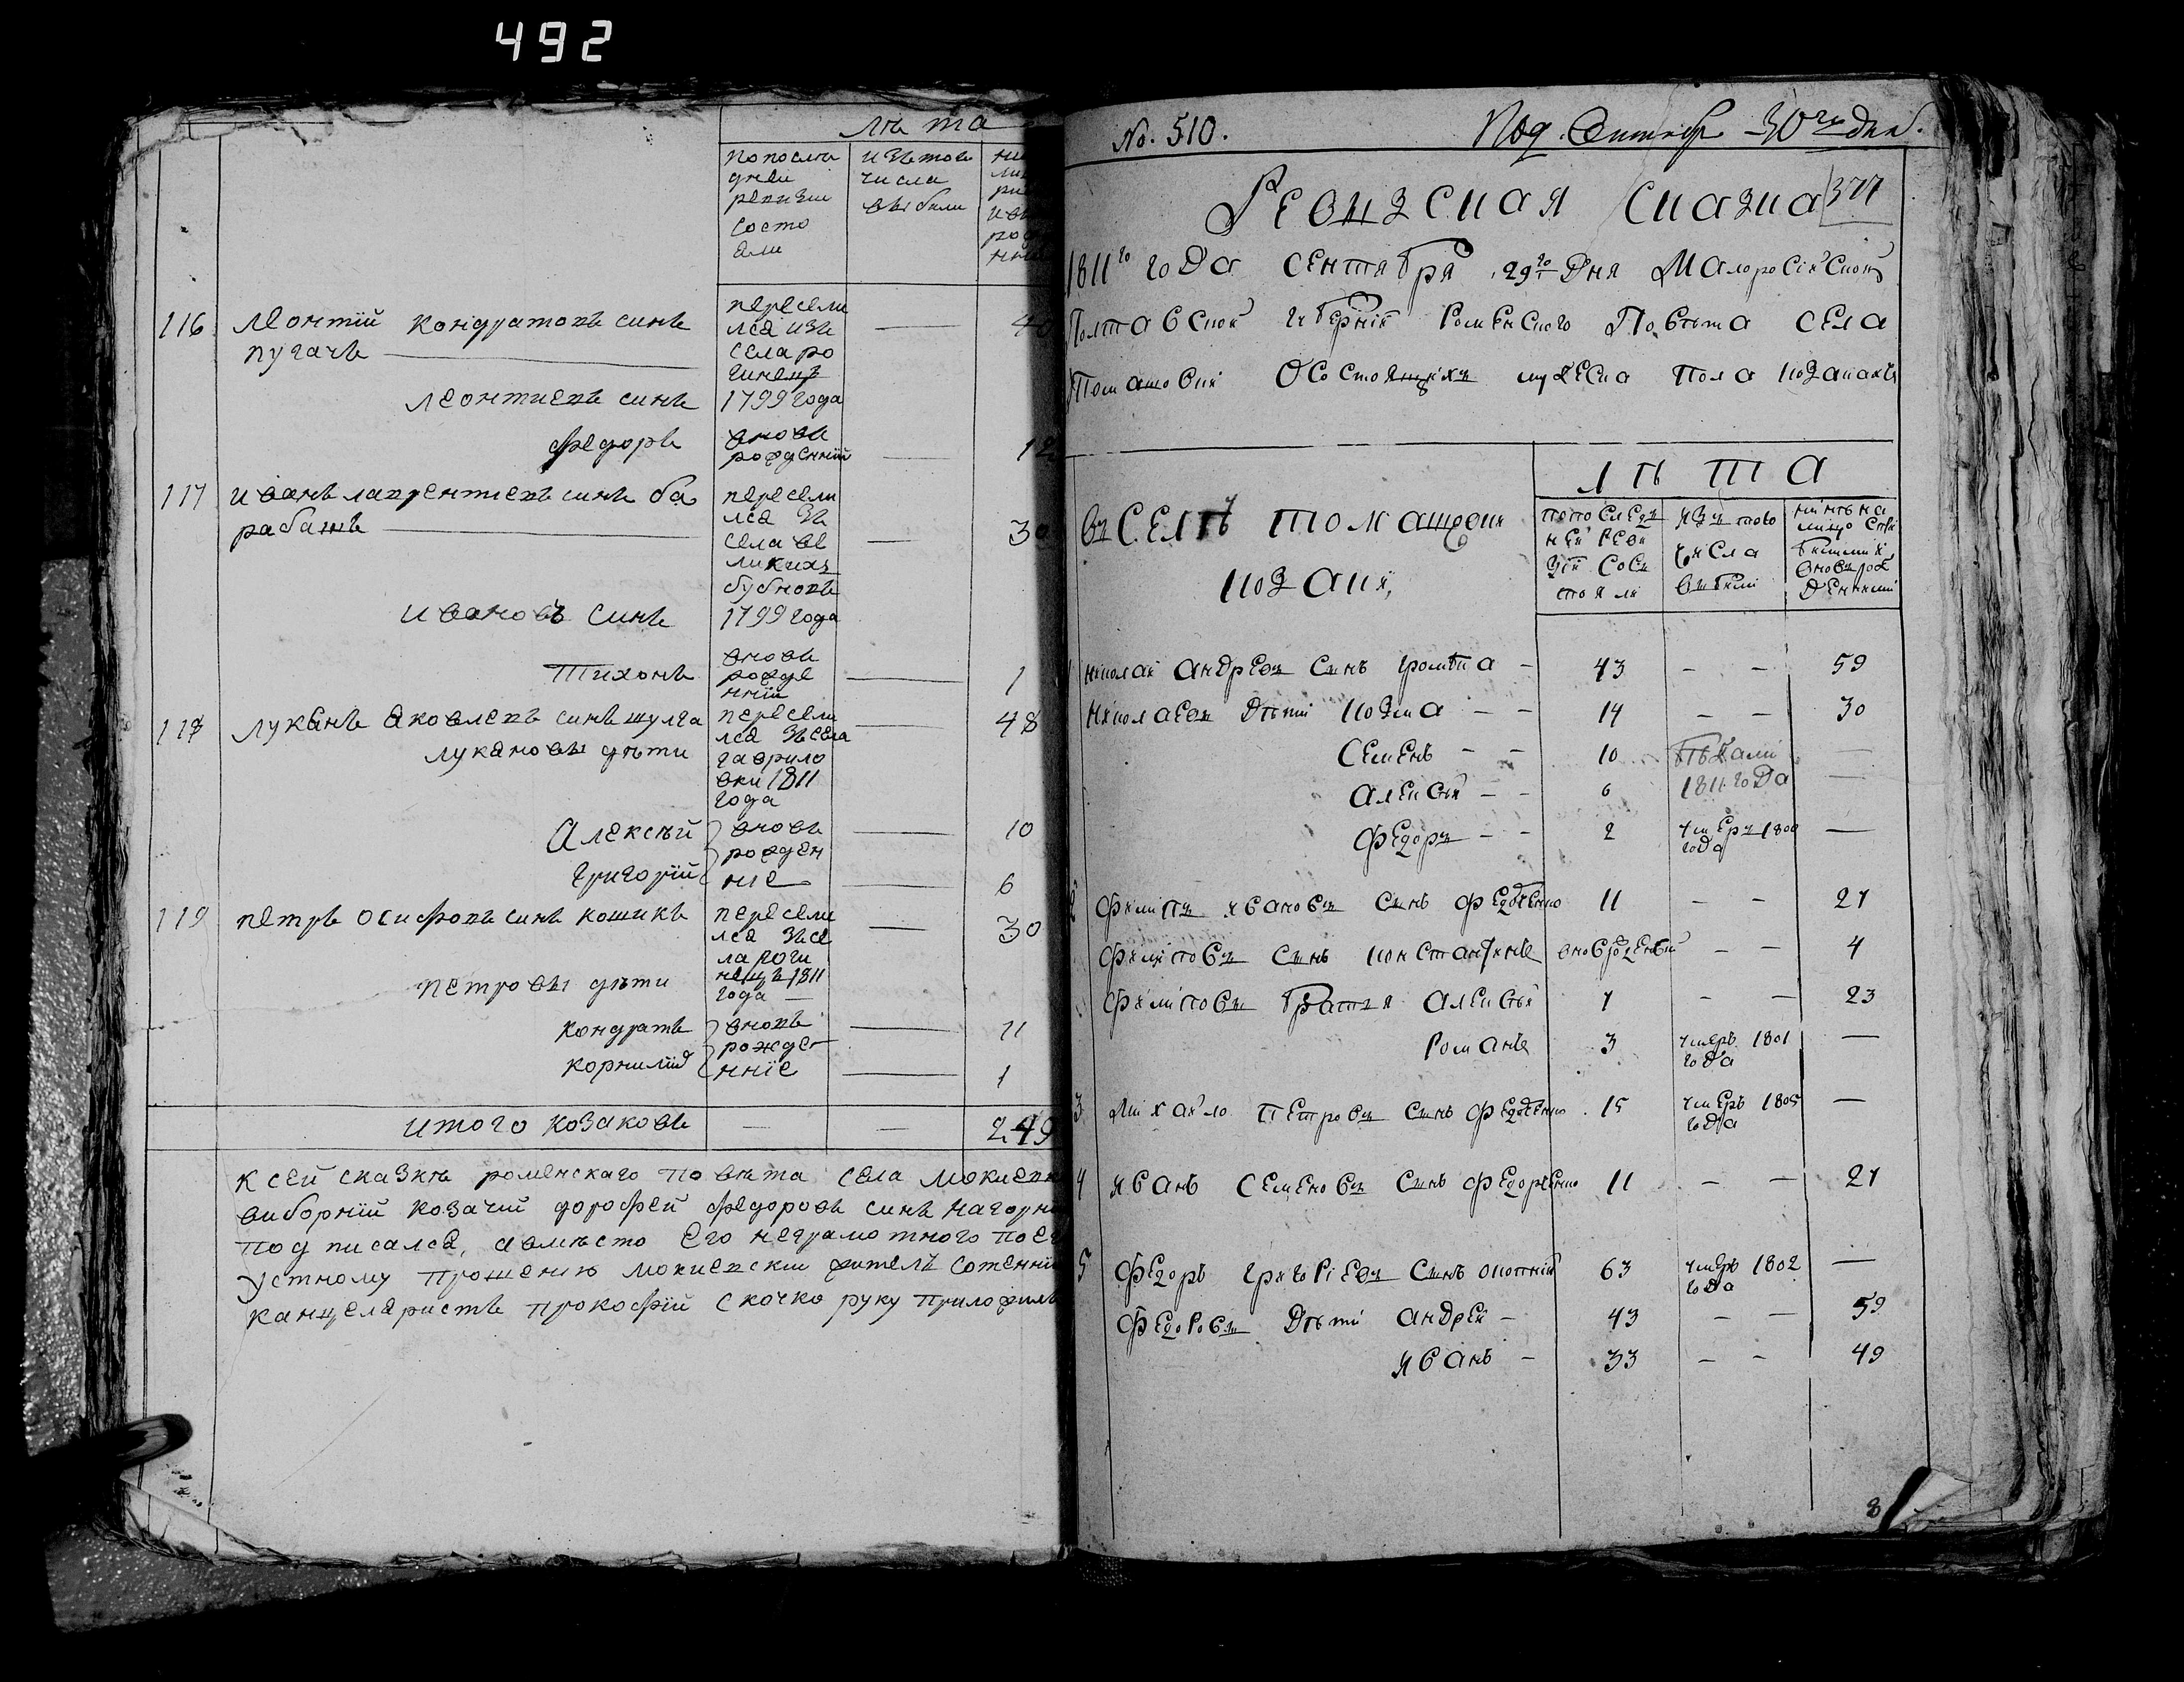 492
лѣта
попослѣ
дней
ревизїи
состо
яли
изътого
числа
выбили
116 леонтїй кондратовъ синъ
пугачъ
пересели
лся изъ
села ро
гинецъ
1799 года
— 40
леонтиевъ синъ
федоръ
вновь
рожденнїй — 12
117 иванъ лаврентиевъ синъ ба
рабашъ
пересели
лся зъ
села ве
ликихъ
бубновъ
1799 года
— 30
ивановъ синъ
тихонъ
вновь
рожде
ннїй — 1
118 лукянъ яковлевъ синъ шулга
лукяновы дѣти
пересели
лся зъ села
гаврило
вки 1811
года
— 48
Алексѣй
григорїй
вновь
рожден
нїе
— 10
— 6
119 петръ осифовъ синъ кошикъ
пересели
лся зъ се
ла роги
нецъ 1811
года —
— 30
петровы дѣти
кондратъ
корнилїй
вновь
рожде
ннїе
— 11
— 1
итого козаковъ — — 249
к сей сказкѣ роменскаго повѣта села мокиевки
виборнїй козачїй дорофей федоровъ синъ нагорн
подписался, авмѣсто его неграмотного поег
устному прошению мокиевски жителъ сотеннїй
канцеляристъ прокофїй скочко руку приложилъ
No. 510.
Под. Сентябр 30го дня.
Ревизская сказка 377
1811го года сентября 29го дня Малоросїйской
Полтавской губернїи Роменского Повѣта села
Томашовки Осостоящихъ мужеска пола козаках
въ Селѣ томашовки
козаки,
лѣта
попослед
ней реви
зїи сос
тояли
изъ того
числа
выбили
нинѣ на
лицо сти
битими
вновъ рож
денними
николай андреевъ синъ громѣка – 43 – – 59
николаеви дѣти козма – – 14 – – 30
семенъ – – 10 бѣжали —
алексѣй – – 6 1811 года —
федоръ – – 2 умеръ 1800
года —
2 филипъ ивановъ синъ федченко 11 – – 27
филиповъ синъ константинъ вноврожденний – – 4
филипови братья алексѣй 7 – – 23
романъ 3 умеръ 1801
года —
3 михайло петровъ синъ федченко 15 умеръ 1805
года —
4 иванъ семеновъ синъ федорченко 11 – – 27
5 федоръ григорїевъ синъ охотнїй 63 умеръ 1802
года —
федорови дѣти андрей – 43 – – 59
иванъ – 33 – – 49
8